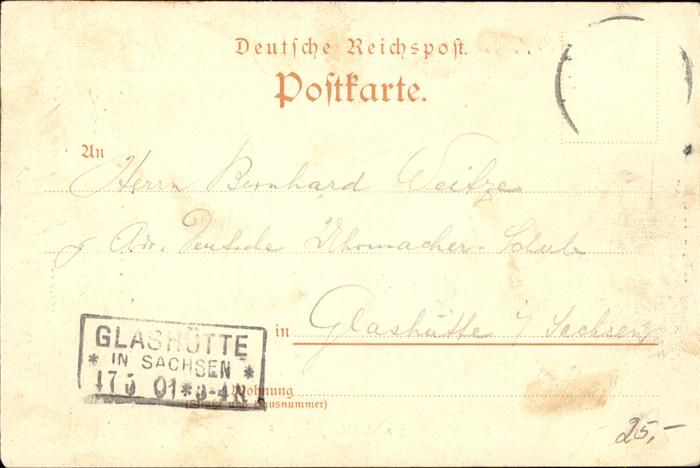 Deutsche Reichspost.
Postkarte.
An
Herrn Bernhard Weitze
Adr. Deutsche Uhrmacher-Schule
in Glashütte i/ Sachsen
GLASHÜTTE
* IN SACHSEN *
17 5 01 * 3-4 N
Wohnung
(Straße und Hausnummer)
25,-